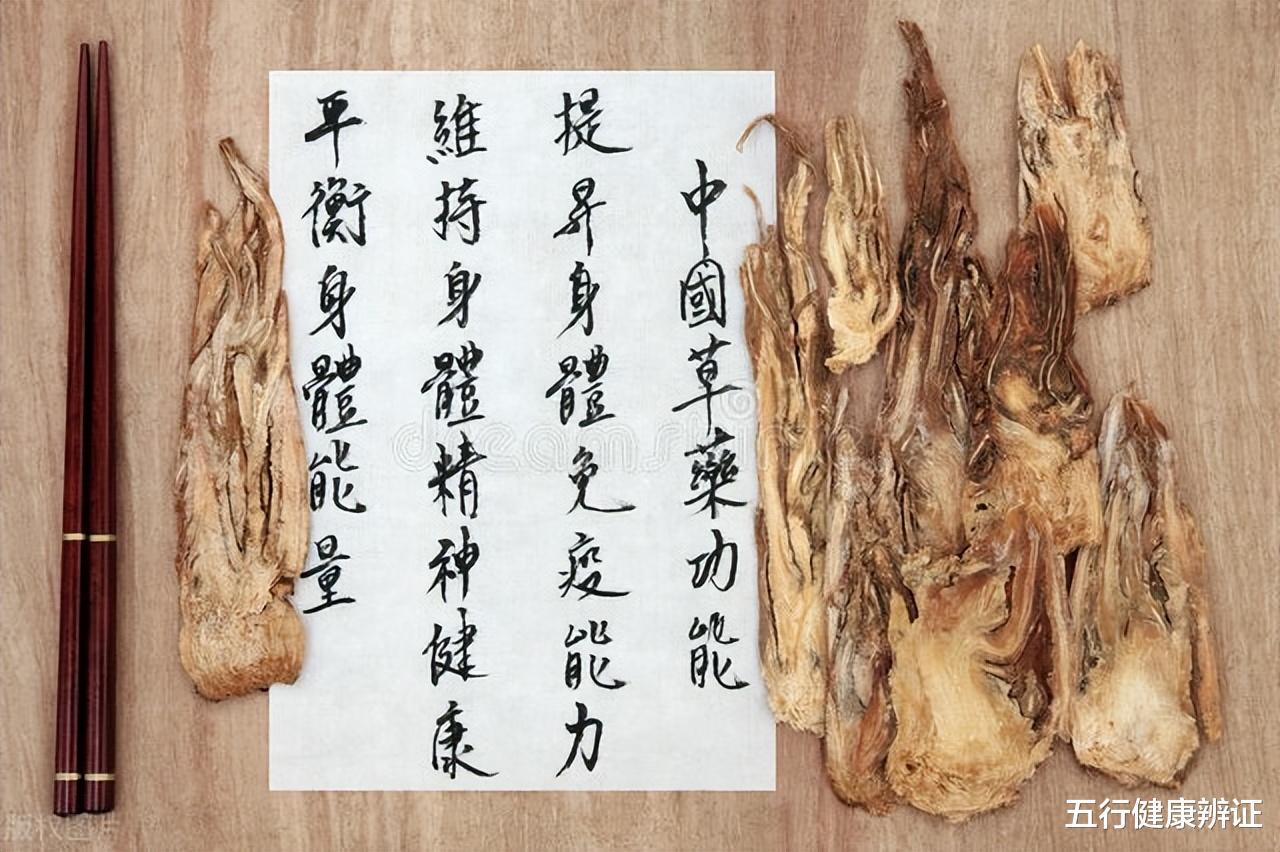 中國草藥功能
提昇身體免疫能力
維持身體精神健康
平衡身體能量
dreamstime
五行健康辨证